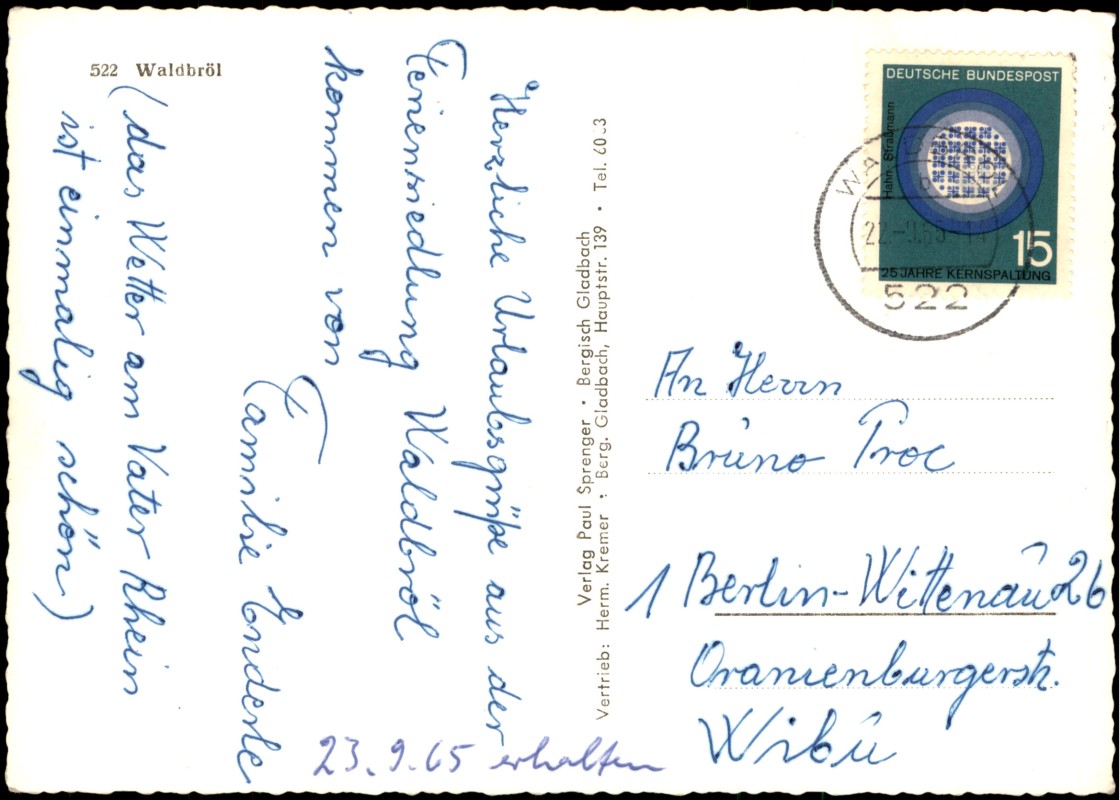 522 Waldbröl
Herzliche Urlaubsgrüße aus der
Feriensiedlung Waldbröl
kommen von
Familie Enderle
(das Wetter am Vater Rhein
ist einmalig schön)
23.9.65 erhalten
Verlag Paul Sprenger • Bergisch Gladbach
Vertrieb: Herm. Kremer • Berg. Gladbach, Hauptstr. 139 • Tel.
DEUTSCHE BUNDESPOST
Hahn · Straßmann
15
25 JAHRE KERNSPALTUNG
522
An Herrn
Bruno Proc
1 Berlin-Wittenau 26
Oranienburgerstr.
Wibu